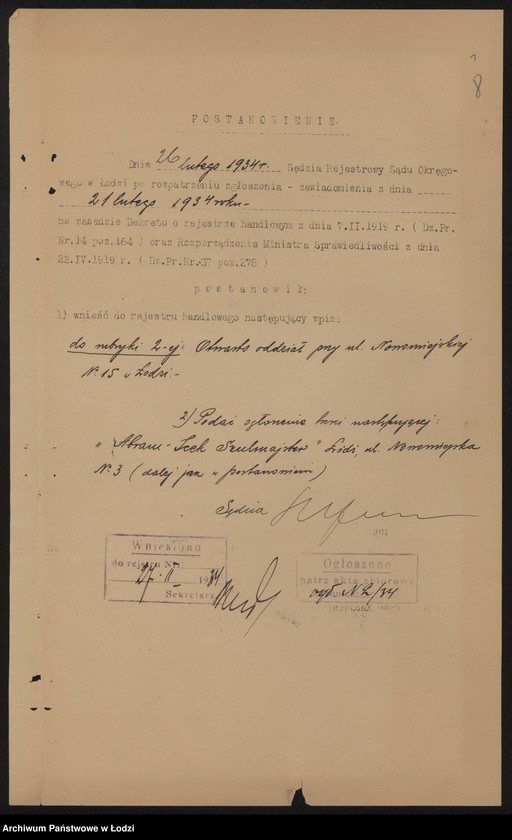 8
POSTANOWIENIE.
Dnia 26 lutego 1934 r. Sędzia Rejestrowy Sądu Okręgo-
wego w Łodzi po rozpatrzeniu zgłoszenia - zawiadomienia z dnia
21 lutego 1934 roku -
na zasadzie Dekretu o rejestrze handlowym z dnia 7.II.1919 r. ( Dz.Pr.
Nr.14 poz.164 ) oraz Rozporządzenia Ministra Sprawiedliwości z dnia
22.IV.1919 r. ( Dz.Pr.Nr.37 poz.278 )
postanowił:
1) wnieść do rejestru handlowego następujący wpis:
do rubryki 2-ej: Otwarto oddział przy ul. Nowomiejskiej
N. 15 w Łodzi.-
2) Podać ogłoszenie treści następującej:
"Abram-Icek Szulmajster" Łódź, ul. Nowomiejska
N. 3 (dalej jak w postanowieniu)
Sędzia
Wniesiono
do rejstru Nr.
27. II 1934
Sekretarz
Ogłoszono
patrz akta zbiorowe
ogł. N. 2/34
Archiwum Państwowe w Łodzi